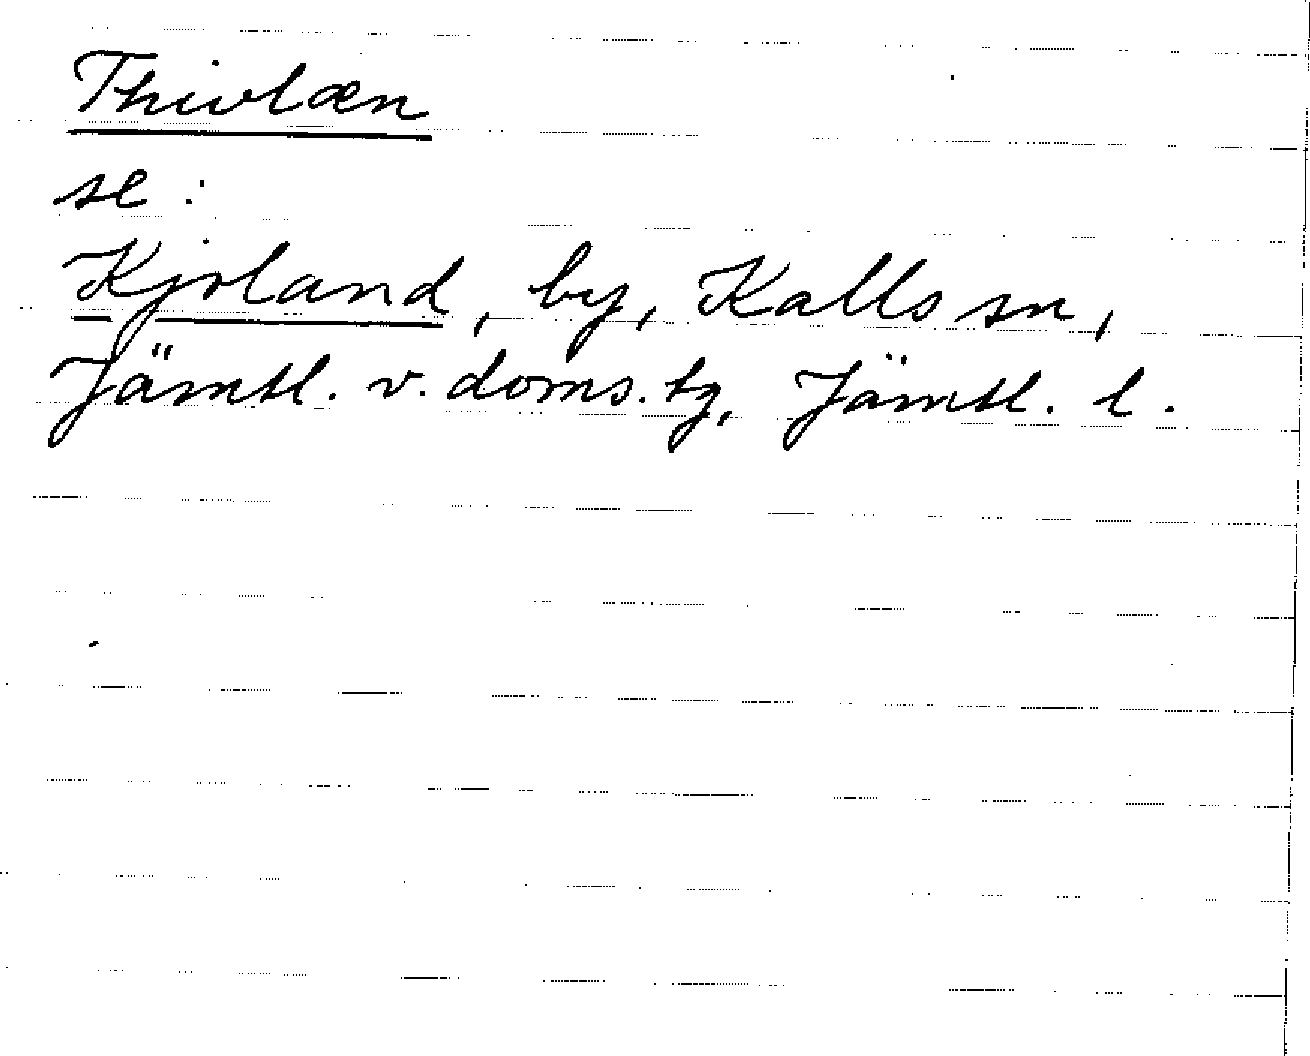 Thiolæn
se :
Kjoland, by, Kalls sn,
Jämtl. v. doms. tg, Jämtl. l.